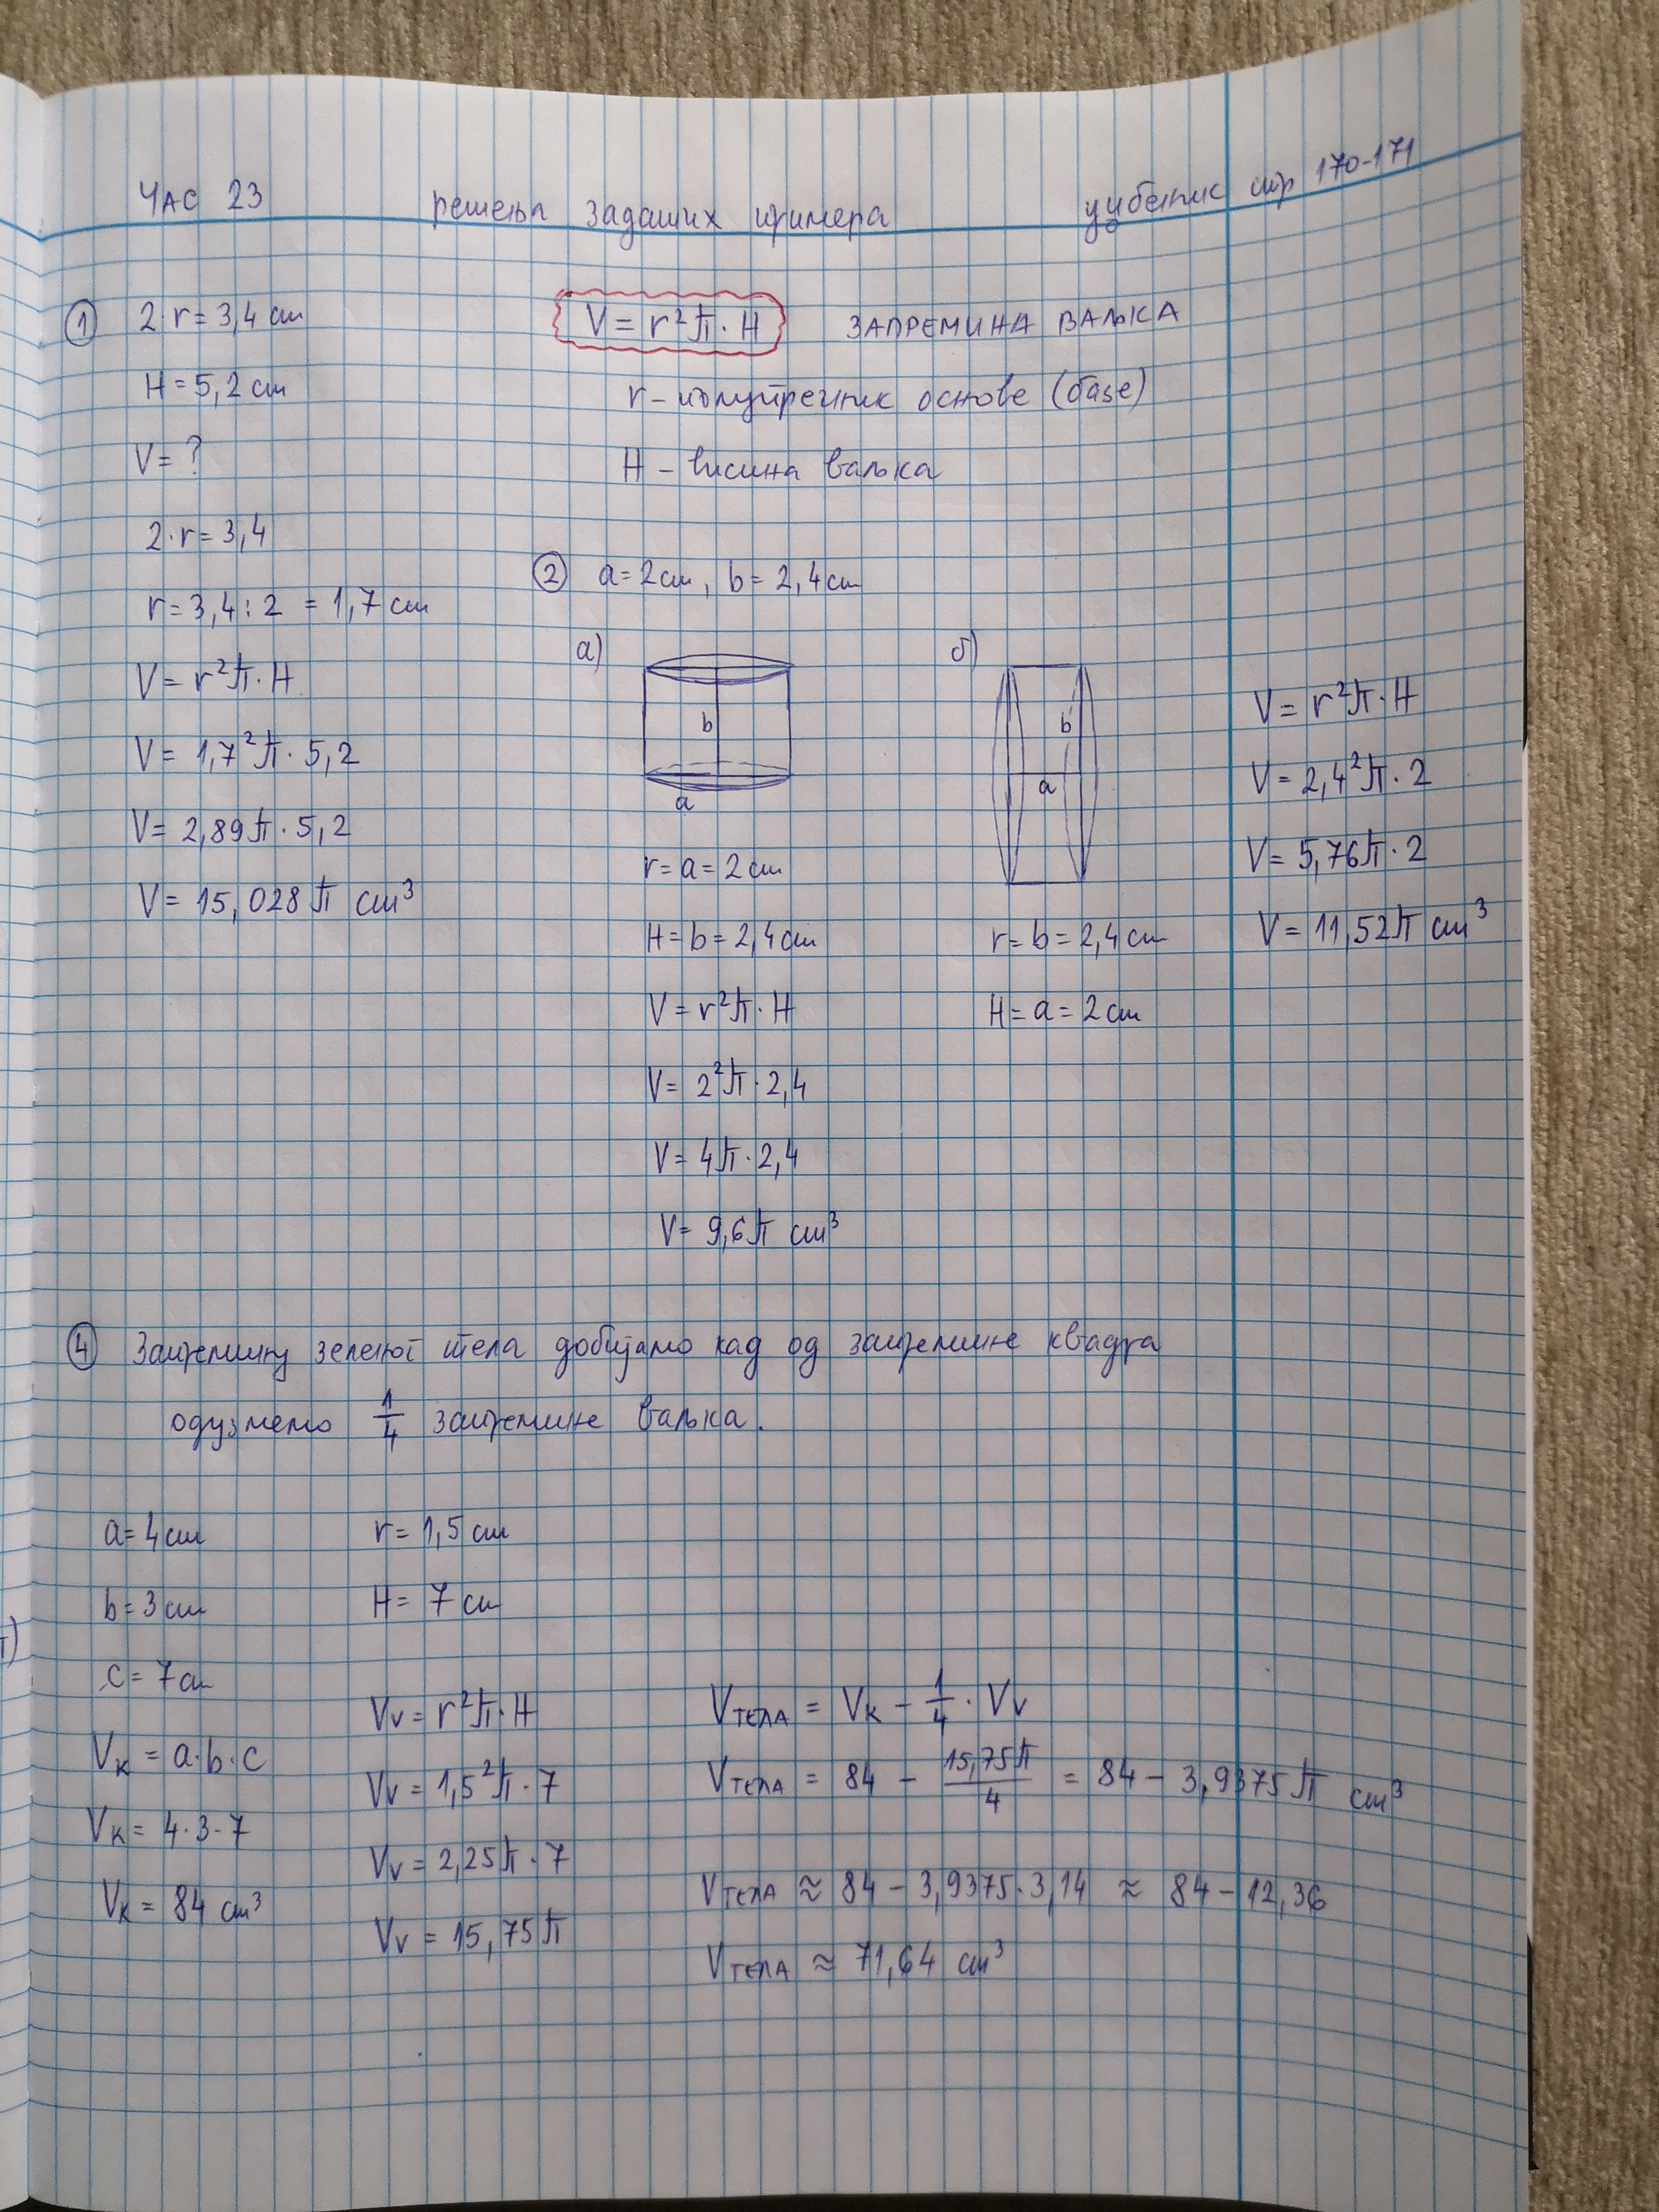 ЧАС 23 решења задатих примера уџбеник стр 170-171
① 2·r = 3,4 cm
H = 5,2 cm
V = ?
2·r = 3,4
r = 3,4 : 2 = 1,7 cm
V = r²π·H
V = 1,7²π·5,2
V = 2,89π·5,2
V = 15,028π cm³
V = r²π·H ЗАПРЕМИНА ВАЉКА
r – полупречник основе (базе)
H – висина ваљка
② a = 2 cm, b = 2,4 cm
а)
b
a
r = a = 2 cm
H = b = 2,4 cm
V = r²π·H
V = 2²π·2,4
V = 4π·2,4
V = 9,6π cm³
б)
b
a
r = b = 2,4 cm
H = a = 2 cm
V = r²π·H
V = 2,4²π·2
V = 5,76π·2
V = 11,52π cm³
④ Запремину зеленог тела добијамо кад од запремине квадра
одузмемо 1/4 запремине ваљка.
a = 4 cm
b = 3 cm
c = 7 cm
Vк = a·b·c
Vк = 4·3·7
Vк = 84 cm³
r = 1,5 cm
H = 7 cm
Vv = r²π·H
Vv = 1,5²π·7
Vv = 2,25π·7
Vv = 15,75π
VТЕЛА = Vк – 1/4 · Vv
VТЕЛА = 84 – 15,75π/4 = 84 – 3,9375π cm³
VТЕЛА ≈ 84 – 3,9375·3,14 ≈ 84 – 12,36
VТЕЛА ≈ 71,64 cm³